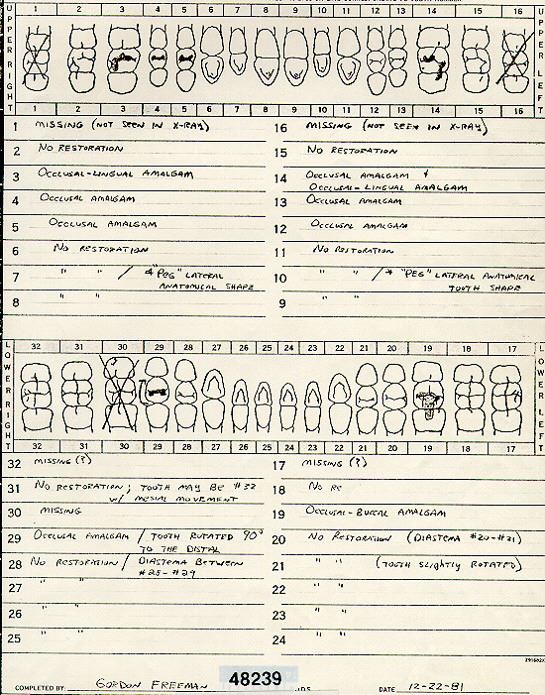 UPPER RIGHT
1 2 3 4 5 6 7 8 9 10 11 12 13 14 15 16
UPPER LEFT
1 2 3 4 5 6 7 8 9 10 11 12 13 14 15 16
1 MISSING (NOT SEEN IN X-RAY)
2 NO RESTORATION
3 OCCLUSAL-LINGUAL AMALGAM
4 OCCLUSAL AMALGAM
5 OCCLUSAL AMALGAM
6 NO RESTORATION
7 " " / * "PEG" LATERAL
ANATOMICAL SHAPE
8 " "
16 MISSING (NOT SEEN IN X-RAY)
15 NO RESTORATION
14 OCCLUSAL AMALGAM &
OCCLUSAL-LINGUAL AMALGAM
13 OCCLUSAL AMALGAM
12 OCCLUSAL AMALGAM
11 NO RESTORATION
10 " " / * "PEG" LATERAL ANATOMICAL
TOOTH SHAPE
9 " "
LOWER RIGHT
32 31 30 29 28 27 26 25 24 23 22 21 20 19 18 17
LOWER LEFT
32 31 30 29 28 27 26 25 24 23 22 21 20 19 18 17
32 MISSING (?)
31 NO RESTORATION; TOOTH MAY BE #32
W/ MESIAL MOVEMENT
30 MISSING
29 OCCLUSAL AMALGAM / TOOTH ROTATED 90°
TO THE DISTAL
28 NO RESTORATION / DIASTEMA BETWEEN
#25-#29
27 " "
26 " "
25 " "
17 MISSING (?)
18 NO RE
19 OCCLUSAL-BUCCAL AMALGAM
20 NO RESTORATION (DIASTEMA #20-#21)
21 " " (TOOTH SLIGHTLY ROTATED)
22 " "
23 " "
24 " "
COMPLETED BY: GORDON FREEMAN 48239 DDS DATE 12-22-81